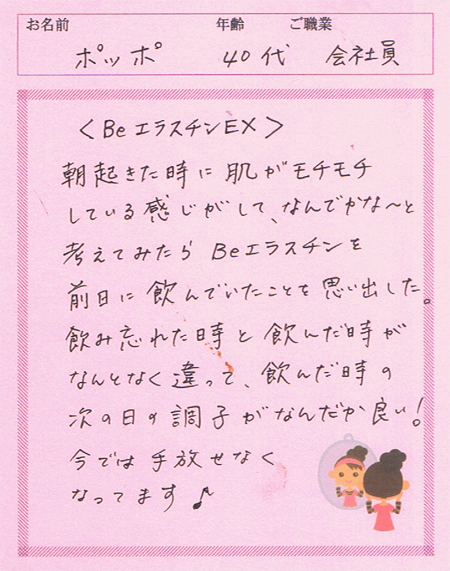 お名前 年齢 ご職業
ポッポ 40代 会社員
<BeエラスチンEX>
朝起きた時に肌がモチモチ
している感じがして、なんでかな〜と
考えてみたらBeエラスチンを
前日に飲んでいたことを思い出した。
飲み忘れた時と飲んだ時が
なんとなく違って、飲んだ時の
次の日の調子がなんだか良い!
今では手放せなく
なってます♪